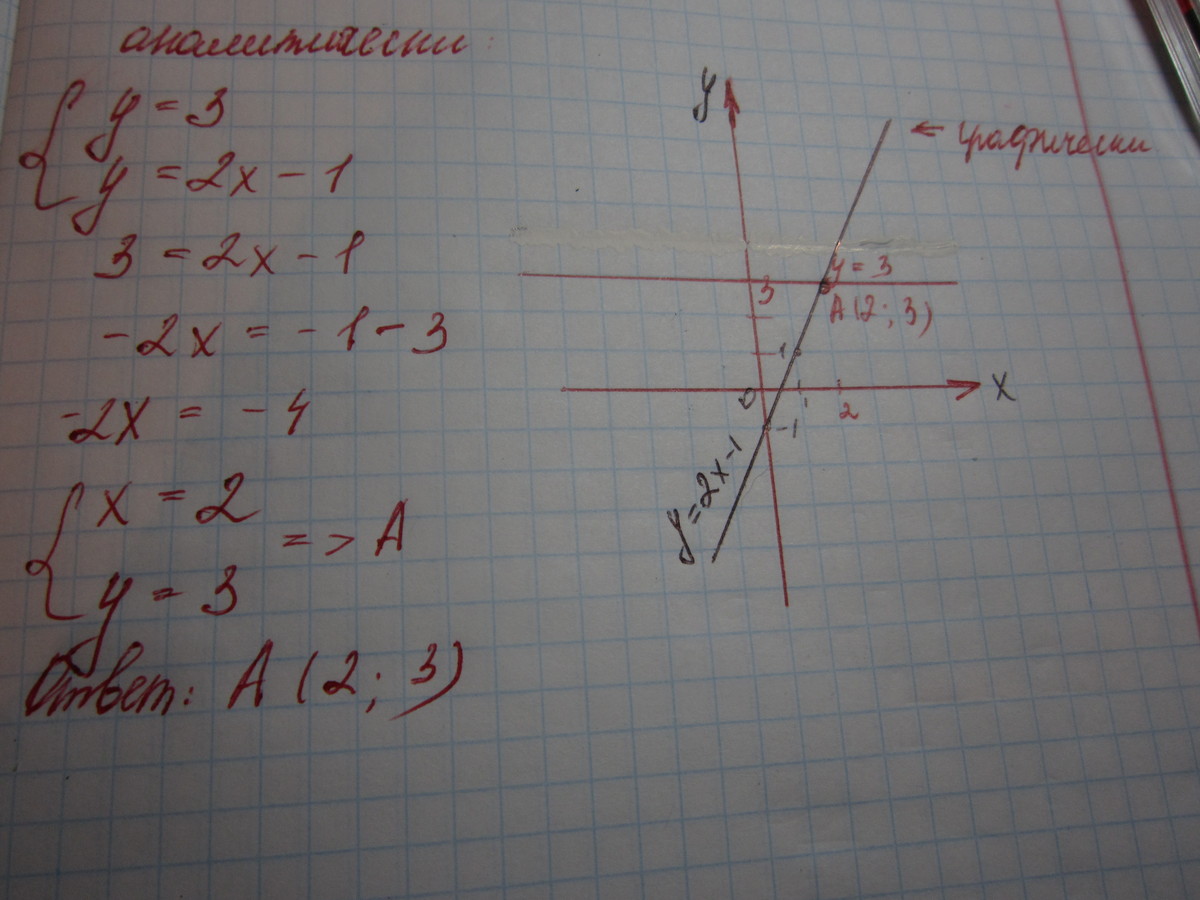 аналитически
y = 3
y = 2x - 1
3 = 2x - 1
-2x = -1 - 3
-2x = -4
x = 2
y = 3
=> A
Ответ: A (2; 3)
y
← графически
y = 3
3
A (2; 3)
1
0
1
2
x
-1
y = 2x - 1